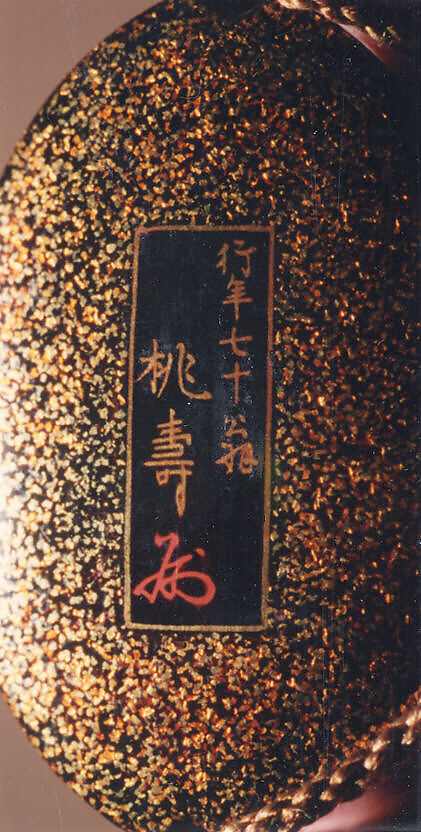 行年七十翁
桃壽